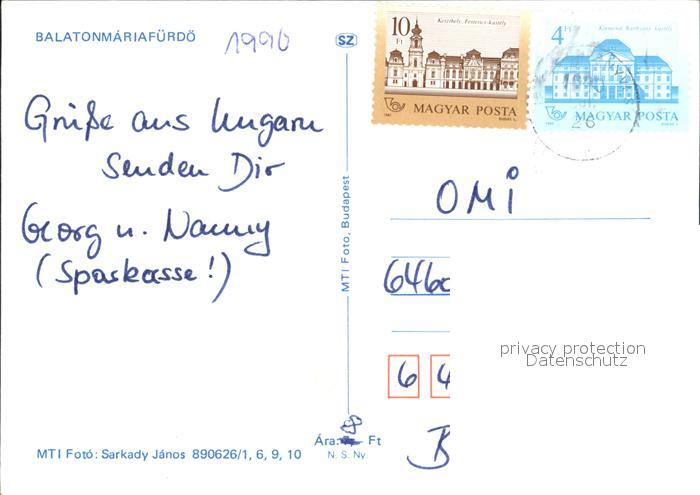 BALATONMÁRIAFÜRDŐ
1990
SZ
10 Ft
Keszthely, Festetics-kastély
MAGYAR POSTA
1987
4 Ft
MAGYAR POSTA
26
Grüße aus Ungarn
senden Dir
Georg u. Nanny
(Sparkasse!)
MTI Foto, Budapest
OMI
646
6 4
B
privacy protection
Datenschutz
Ára: Ft
N. S. Ny.
MTI Fotó: Sarkady János 890626/1, 6, 9, 10